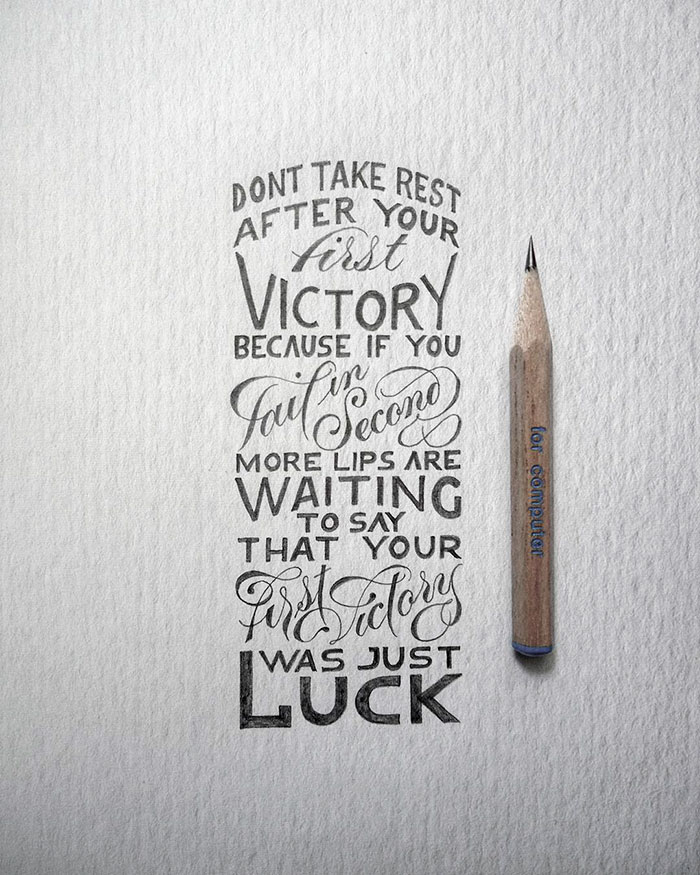 DONT TAKE REST
AFTER YOUR
first
VICTORY
BECAUSE IF YOU
Fail in
Second
MORE LIPS ARE
WAITING
TO SAY
THAT YOUR
First Victory
WAS JUST
LUCK
for computer